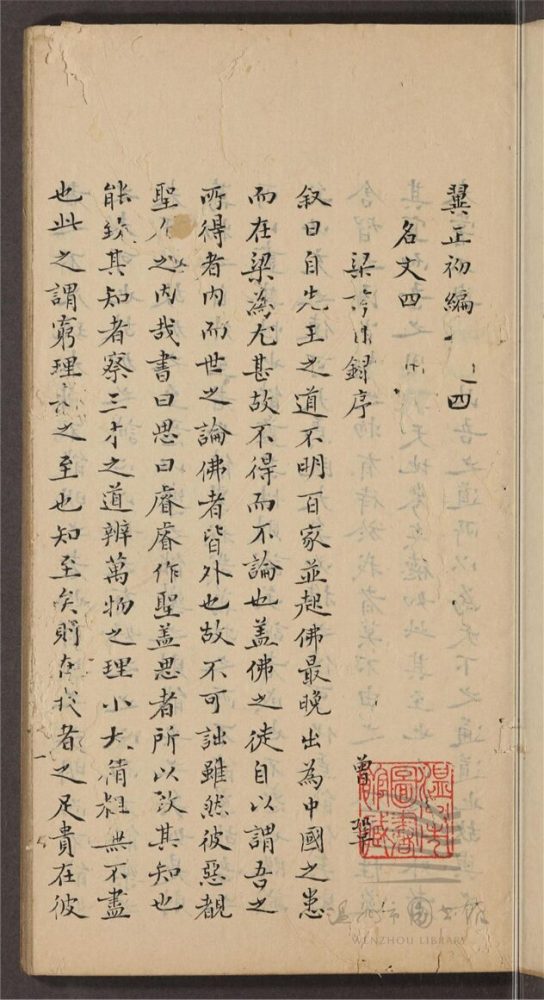 翼正初編 四
名文四
梁 目録序
曾鞏
叙曰自先王之道不明百家並起佛最晚出為中國之患
而在梁為尤甚故不得而不論也盖佛之徒自以謂吾之
所得者内而世之論佛者皆外也故不可詘雖然彼惡覩
聖人之内哉書曰思曰睿睿作聖盖思者所以致其知也
能致其知者察三才之道辨萬物之理小大精粗無不盡
也此之謂窮理知之至也知至矣則在我者之足貴在彼
温州市圖書館藏
温州市图书馆
WENZHOU LIBRARY